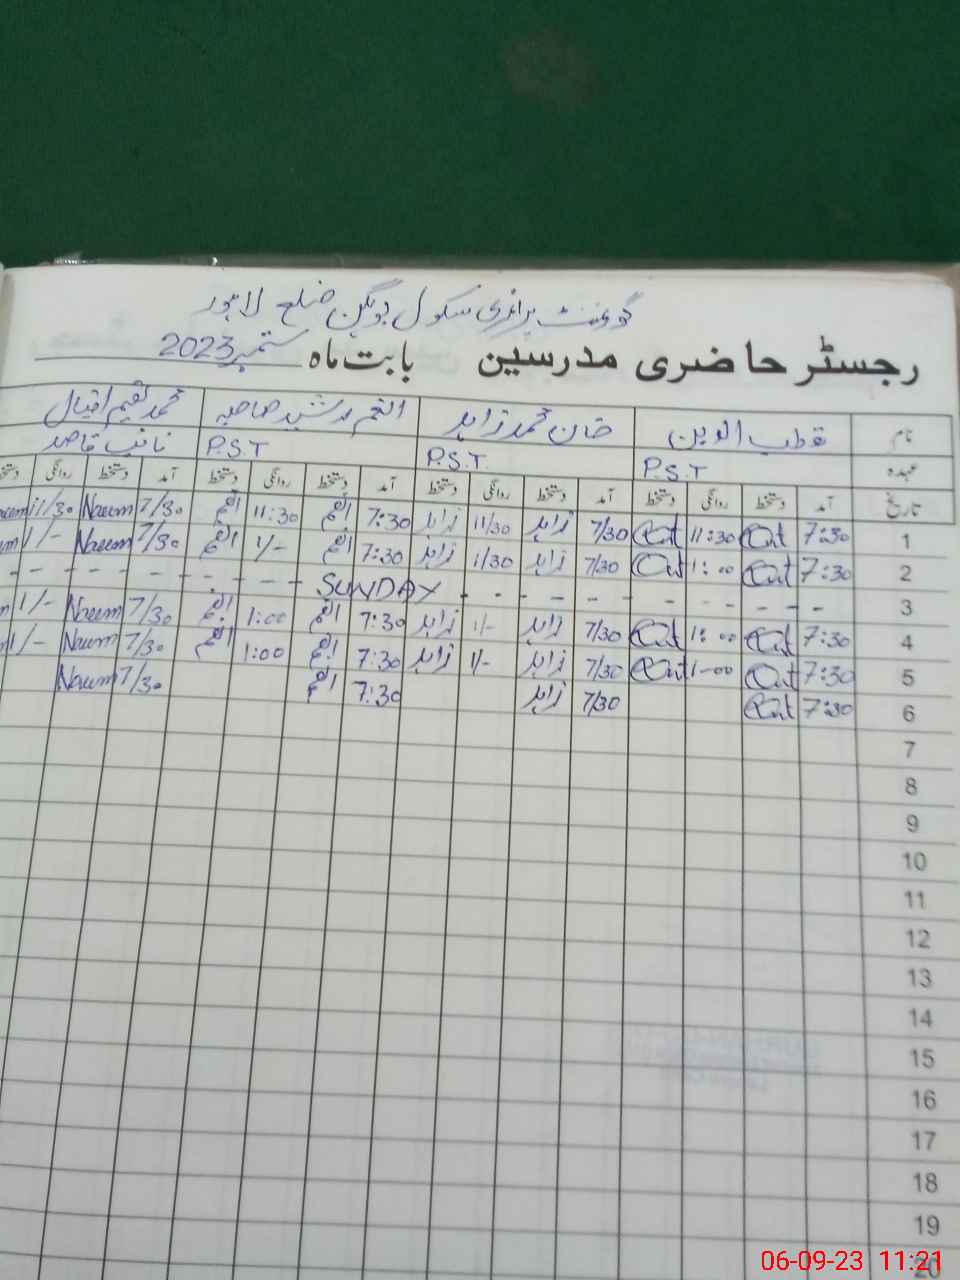 گورنمنٹ پرائمری سکول ضلع لاہور
رجسٹر حاضری مدرسین بابت ماہ ستمبر 2023
نام قطب الدین خان محمد زاہد انعم رشید صاحبہ محمد نعیم اقبال
عہدہ P.S.T P.S.T. P.S.T نائب قاصد
تاریخ آمد دستخط روانگی دستخط آمد دستخط روانگی دستخط آمد دستخط روانگی دستخط آمد دستخط روانگی دستخط
1 7:30 11:30 7/30 زاہد 11/30 زاہد 7:30 انعم 11:30 انعم 7/30 Naeem 11/30
2 7:30 1:00 7/30 زاہد 1/30 زاہد 7:30 انعم 1/- انعم 7/30 Naeem 1/-
3 - - - - - - SUNDAY - - - - - -
4 7:30 1:00 7/30 زاہد 1/- زاہد 7:30 انعم 1:00 انعم 7/30 Naeem 1/-
5 7:30 1-00 7/30 زاہد 1/- زاہد 7:30 انعم 1:00 انعم 7/30 Naeem 1/-
6 7:30 7/30 زاہد 7:30 انعم 7/30 Naeem
7
8
9
10
11
12
13
14
15
16
17
18
19
20
06-09-23 11:21